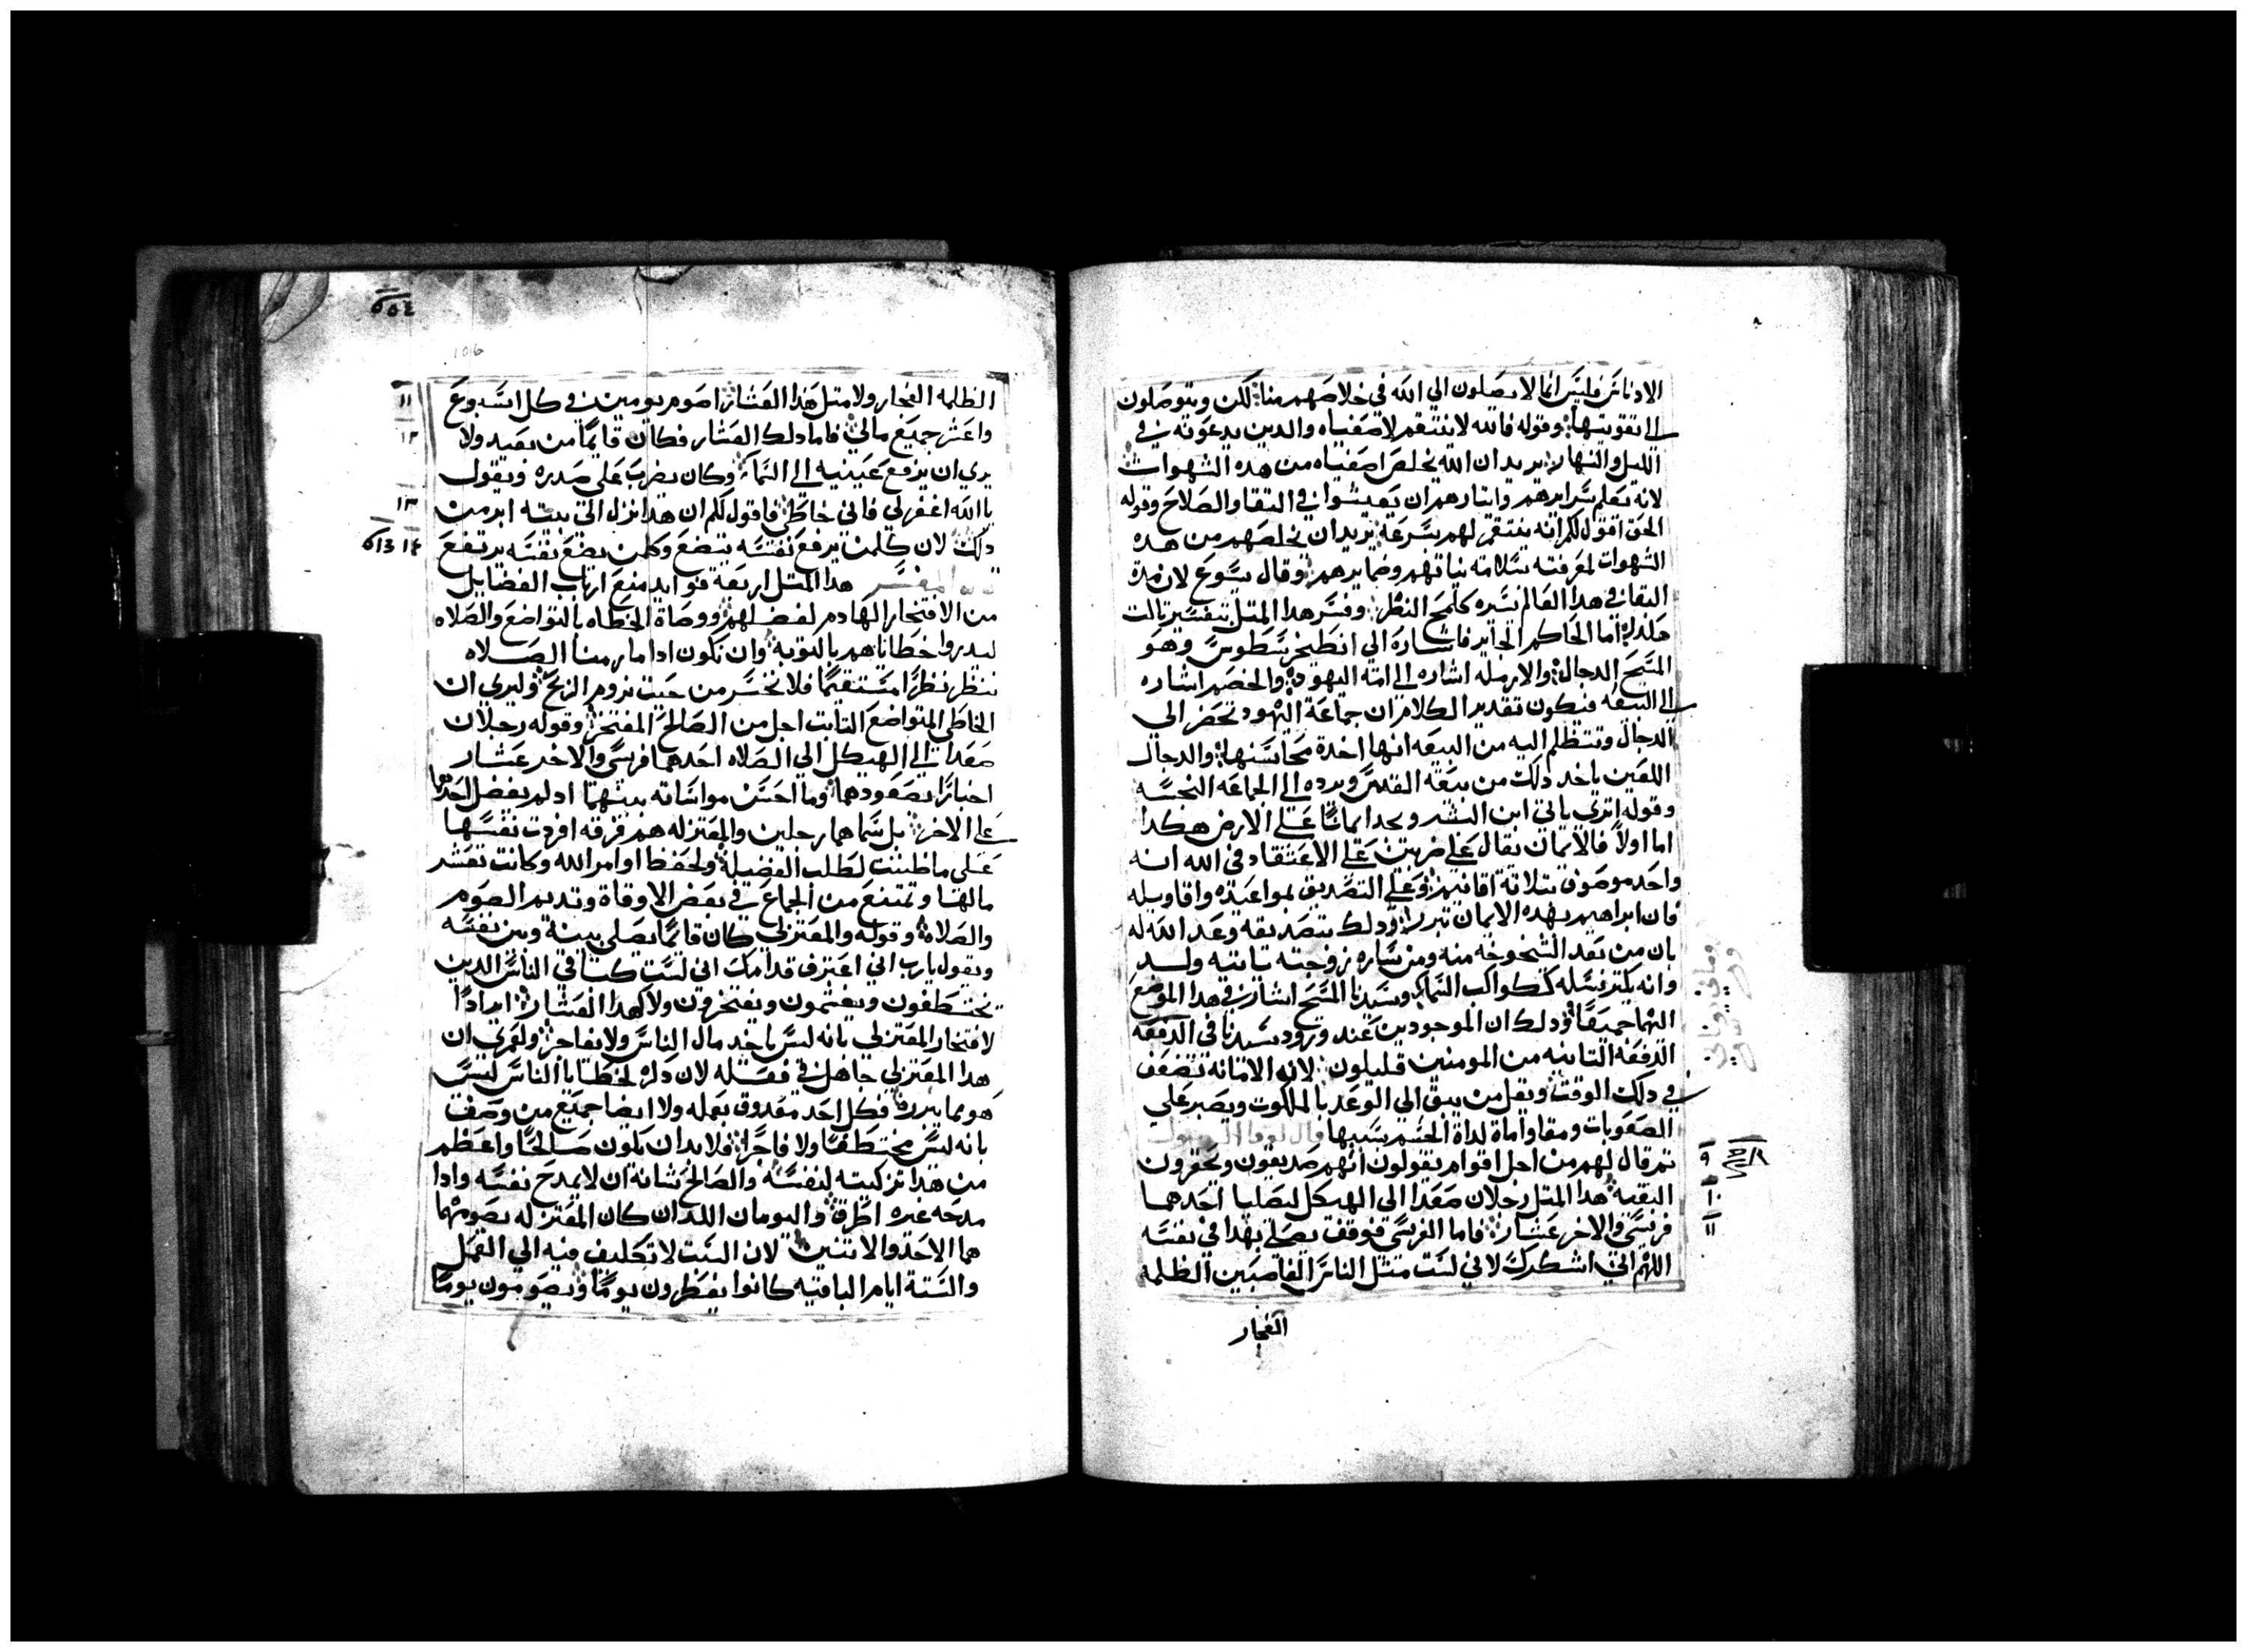 الادناس فليس انما لا يصلون الي الله في خلاصهم منها لكن ويتوصلون
الي تقويتها وقوله فالله لا ينتقم لاصفيايه والدين يدعونه في
الليل والنهار يريد ان الله يخلص اصفيايه من هده الشهوات
لانه يعلم سرايرهم وايتارهم ان يعيشوا في التقا والصلاح وقوله
الحق اقول لكم انه ينتقم لهم بسرعة يريد ان يخلصهم من هده
الشهوات لمعرفته بسلامة نياتهم وضمايرهم وقال بسوع لان مدة
البقا في هدا العالم يسيره كلمح النظر وفسر هدا المتل بتفسير تالت
اما الحاكم الجاير فاشارة الي انطيخرسطوس وهو
المسيح الدجال والارمله اشاره الي امة اليهود والخصم اشاره
الي البيعه فيكون تقدير الكلام ان جماعة اليهود تحضر الي
الدجال وتتظلم اليه من البيعه انها اخدة محاسنها والدجال
اللعين ياخد دلك من بيعة القدس ويرده الي الجماعه النجسه
وقوله اتري ياتي ابن البشر ويجد ايمانًا علي الارض هكدا
اما اولاً فالايمان يقال علي ضربين علي الاعتقاد في الله انه
واحد موصوف بتلاتة اقانيم وعلي التصديق بمواعيده واقاويله
فان ابراهيم بهده الايمان تبرر ودلك بتصديقه وعد الله له
بان من بعد الشيخوخه منه ومن ساره زوجته ياتيه ولد
وانه يكتر نسله ككواكب السما وسيدنا المسيح اشار في هدا الموضع
اليهما جميعًا ودلك ان الموجودين عند ورود سيدنا في الدفعة
الدفعه التانيه من المومنين قليلون لانه الامانه تضعف
في دلك الوقت ويقل من يبق الي الوعد بالملكوت ويصبر علي
الصعوبات ومقاواماة لداة الجسم بسببها قال لوقا
تم قال لهم من اجل اقوام يقولون انهم صديقون ويحقرون
٩
البقيه هدا المتل رجلان صعدا الي الهيكل ليصليا احدهما
١٠
فريسي والاخر عشار فاما الفريسي فوقف يصلي بهدا في نفسه
١١
اللهم اني اشكرك لاني لست متل الناس الغاصبين الظلمه
الفجار
٥٥٤
106
الظلمه الفجار ولا متل هذا العشار اصوم يومين في كل اسبوع
١١
واعشر جميع مالي فاما دلك العشار فكان قايمًا من بعيد ولا
١٢
يري ان يرفع عينيه الي السما وكان يضرب علي صدره ويقول
يا الله اغفر لي فاني خاطي فاقول لكم ان هدا نزل الي بيته ابر من
١٣
دلك لان كلمن يرفع نفسه يتضع وكلمن يضع نفسه يرتفع
١٤
قال المفسر هدا المتل اربعة فوايد منع ارباب الفضايل
من الافتخار الهادم لفضلهم ووصاة الخطاه بالتواضع والصلاه
خطاياهم بالتوبه وان تكون ادامة الصلاه
ننظر نظرًا مستقيمًا فلا نخسر من حيت نروم الربح وليري ان
الخاطي المتواضع التايب اجل من الصالح المفتخر وقوله رجلان
صعدا الي الهيكل الي الصلاه احدهما فريسي والاخر عشار
اخبارًا بصعودهما وما احسن مواساته بينهما اد لم يفضل احدهما
علي الاخر بل سماهما رجلين والمعتزله هم فرقه افردت نفسها
علي ما ظننت لطلب الفضيله ولحفظ اوامر الله وكانت تعشر
مالها وتمتنع من الجماع في بعض الاوقاة وتديم الصوم
والصلاه وقوله والمعتزلي كان قايمًا يصلي بينه وبين نفسه
ويقول يارب اني اعترف قدامك اني لست كباقي الناس الدين
يختطفون ويغشمون ويفتخرون ولا كهدا العشار ايرادًا
لافتخار المعتزلي بانه ليس ياخد مال الناس ولا يفاجر ولعمري ان
هدا المعتزلي جاهل في فعله لان دكره لخطايا الناس ليس
هو مما يبرره فكل احد مقدوق بعمله ولا ايضا جميع من وصف
بانه ليس مختطفًا ولا فاجرًا فلابد ان يكون صالحًا واعظم
من هدا تزكيته لنفسه والصالح شانه ان لا يمدح نفسه وادا
مدحه غيره اطرق واليومان اللدان كان المعتزله يصومهما
هما الاحد والاتنين لان السبت لا تكليف فيه الي العمل
والستة ايام الباقيه كانوا يفطرون يومًا ويصومون يومًا